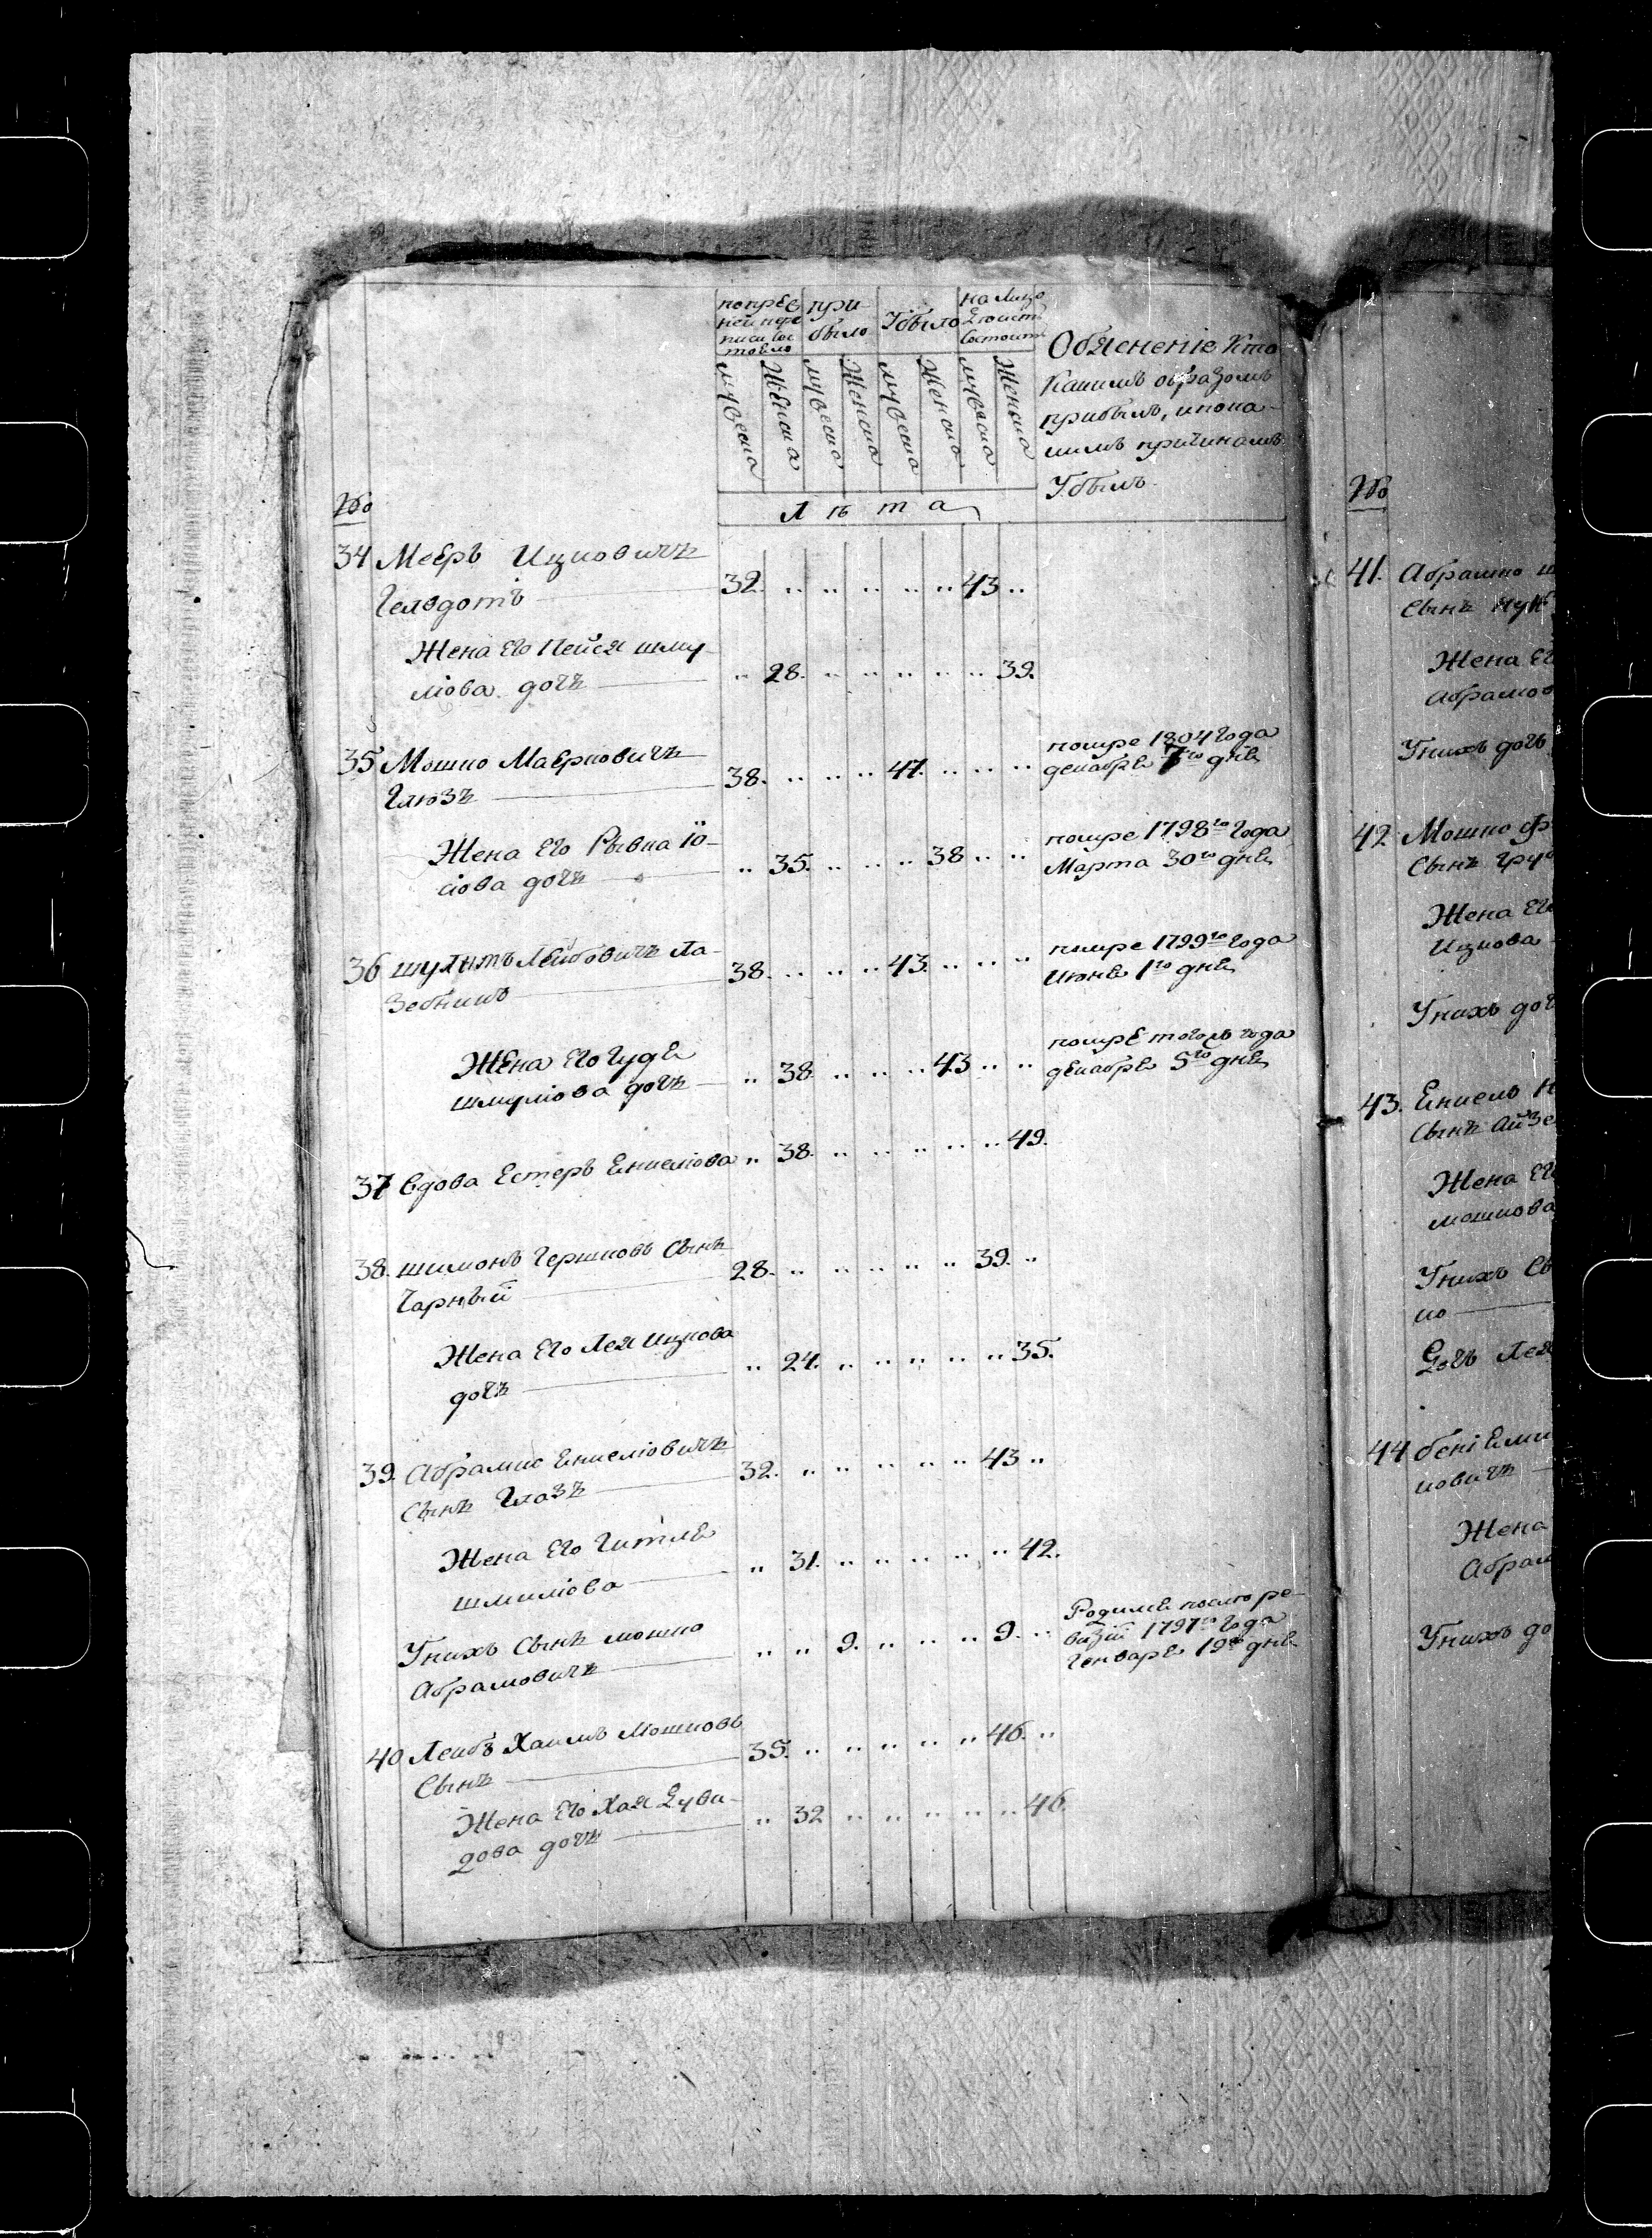 попрев при Убыло на лицо
ней пере было Дѣйст
писи сос состоитъ
тояло
Обясненіе Кто
Какимъ образомъ
прибылъ, и по ка-
кимъ причинамъ
Убылъ.
мужеска Женска мужеска Женска мужеска Женска мужеска Женска
№
Л ѣ т а
34 Мееръ Ицковичъ
Гелвдотъ 32. „ „ „ „ „ „ 43 „
Жена Его Пейся шму
лiова дочь „ 28. „ „ „ „ „ 39.
35 Мошко Маерковичъ
Глюзъ 38. „ „ „ 47. „ „ „ помре 1804 года
декабря 7го дня
Жена Его Рывка Іо-
сiова дочь „ 35. „ „ „ 38 „ „ помре 1798го года
Марта 30го дня
36 шулимъ Лейбовичъ Ла-
Зебникъ 38. „ „ „ 43. „ „ „ помре 1799го года
Июня 1го дня
Жена Его Гудя
шмулiова дочь „ 38. „ „ „ 43 „ „ помре тогожъ года
декабря 5го дня
37 вдова Естеръ Енкелiова „ 38. „ „ „ „ „ 49.
38. шимонъ Гершковъ Сынъ
Чарный 28. „ „ „ „ „ 39. „
Жена Его Лея Ицкова
дочь „ 24. „ „ „ „ „ 35.
39. Абрамко Енкелiовичъ
Сынъ Глазъ 32. „ „ „ „ „ 43 „
Жена Его Гитля
шмилiова „ 31. „ „ „ „ „ 42.
Унихъ Сынъ мошко
Абрамовичъ „ „ 9. „ „ „ „ 9. „ Родился после ре-
визiй 1797го года
Генваря 19го дня
40 Лейбъ Хаимъ Мошковъ
Сынъ 35. „ „ „ „ „ 46. „
Жена Его Хая Дуви-
дова дочь „ 32 „ „ „ „ „ 46.
№
41. Абрамко
Сынъ
Жена Ег
Абрамов
Унихъ дочь
42 Мошко
Сынъ
Жена Его
Ицкова
Унихъ доч
43. Енкель
Сынъ Айзе
Жена Ег
мошкова
Унихъ Сы
ко
Дочь Лея
44
ковичъ
Жена
Абрам
Унихъ до